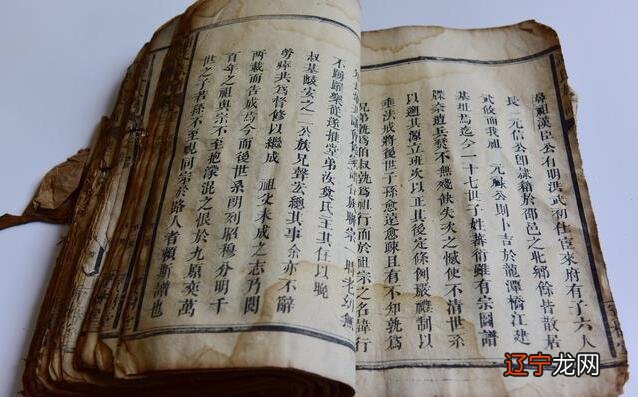 鼻祖漢臣公有明洪武初仕宦來府有子六人
長 元信公卽隷籍於邵邑之北鄉餘皆散居
武攸而我祖 元祿公則卜吉於龍潭橋江建
基址焉迄今一十七世子姓蕃衍雖有宗圖譜
牒奈遭兵燹不無殘缺失次之憾使不清世系
以遡其源立班次以正其後定條例嚴禮制以
垂法戒將後世子孫愈遠愈疎且有不知孰爲
兄弟孰爲伯叔孰爲祖行而於祖宗之名諱行
不踴躍樂從遂推堂弟汝爕氏主其任以晚
叔基峻安之二公族兄聲宏總其事余亦不辭
勞瘁共爲督修以繼成 祖父未成之志乃閲
兩載而告成焉今而後世系明列昭穆分明千
百年之祖與宗不至抱濛混之恨於九原奕萬
世之子若孫不至視同宗於路人者賴斯譜也
辽宁龙网